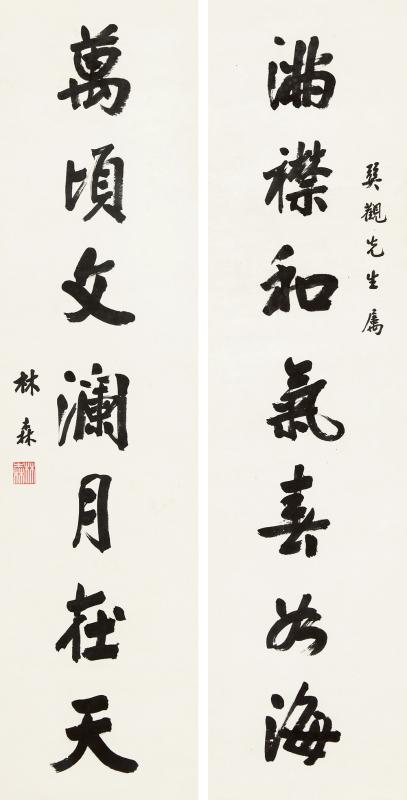 巽觀先生屬
滿襟和氣春如海
萬頃文瀾月在天
林森